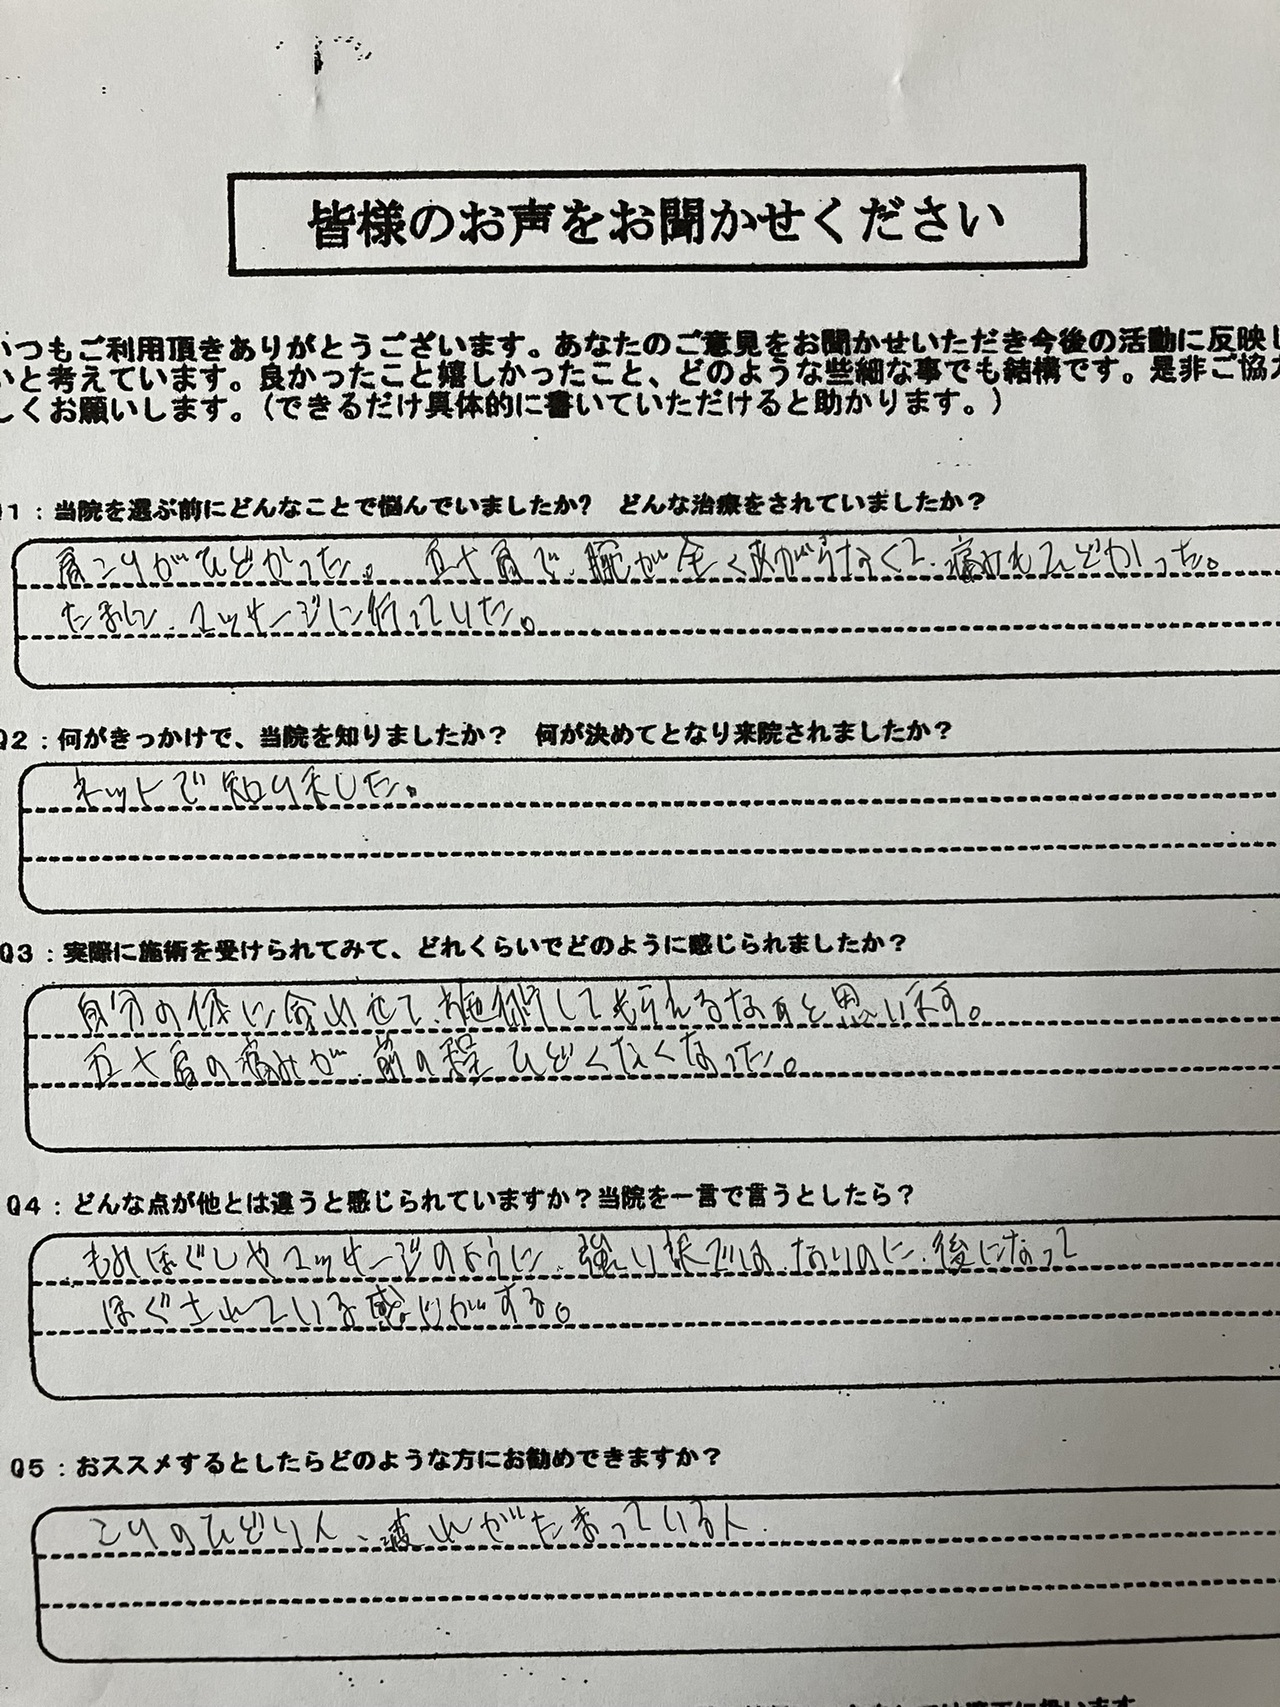 皆様のお声をお聞かせください
いつもご利用頂きありがとうございます。あなたのご意見をお聞かせいただき今後の活動に反映し
いと考えています。良かったこと嬉しかったこと、どのような些細な事でも結構です。是非ご協力
しくお願いします。(できるだけ具体的に書いていただけると助かります。)
Q1:当院を選ぶ前にどんなことで悩んでいましたか? どんな治療をされていましたか?
肩こりがひどかった。 五十肩で、腕が全くあがらなくて、痛みもひどかった。
たまに、マッサージに行っていた。
Q2:何がきっかけで、当院を知りましたか? 何が決めてとなり来院されましたか?
ネットで知りました。
Q3:実際に施術を受けられてみて、どれくらいでどのように感じられましたか?
自分の体に合わせて、施術してもらえるなぁと思います。
五十肩の痛みが、前の程ひどくなくなった。
Q4:どんな点が他とは違うと感じられていますか?当院を一言で言うとしたら?
もみほぐしやマッサージのように、強い訳ではないのに、後になって
ほぐされている感じがする。
Q5:おススメするとしたらどのような方にお勧めできますか?
こりのひどい人、疲れがたまっている人